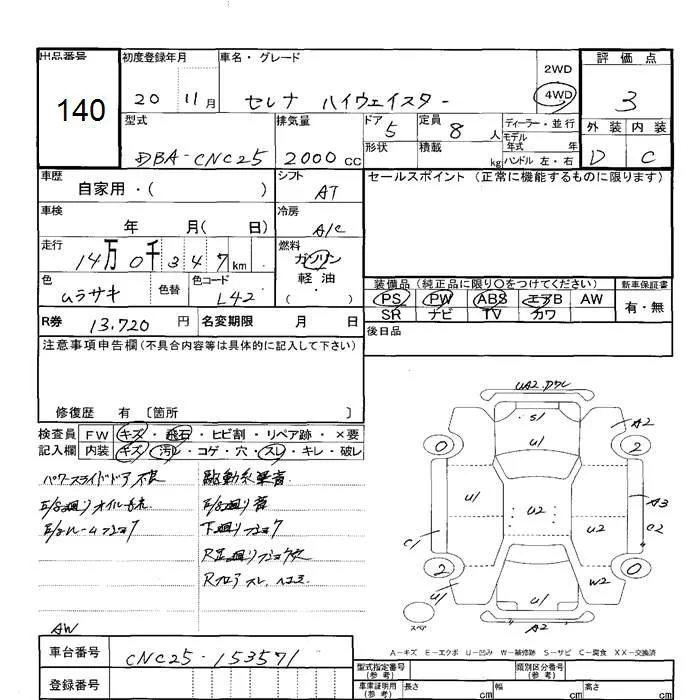 出品番号 初度登録年月 車名・グレード 2WD 評価点
140 20 11月 セレナ ハイウェイスター 4WD 3
型式 排気量 ドア 5 定員 8 人 ディーラー・並行 外装 内装
DBA-CNC25 2000 CC 形状 積載 kg モデル年式 年 D C
ハンドル 左・右
車歴 シフト セールスポイント (正常に機能するものに限ります)
自家用・( ) AT
車検 冷房
年 月( 日) A/C
走行 燃料
14万0千347 km ガソリン
色 色替 色コード 軽油 装備品(純正品に限り○をつけてください) 新車保証書
ムラサキ L42 ( ・ ) PS PW ABS エアB AW 有・無
R券 13,720 円 名変期限 月 日 SR ナビ TV カワ
後日品
注意事項申告欄(不具合内容等は具体的に記入して下さい)
修復歴 有 〔箇所 〕
検査員 FW キズ・飛石・ヒビ割・リペア跡・×要
記入欄 内装 キズ・汚レ・コゲ・穴・スレ・キレ・破レ
パワースライドドア不良
E/G廻りオイル
E/Gルーム
下廻り
AW
車台番号 CNC25-153571
登録番号
UA2
S1
U1
A2
0
2
U1
U2
U2
A3
C2
C1
2
0
U1
W2
U1
A2
スペア
A-キズ E-エクボ U-凹み W-補修跡 S-サビ C-腐食 XX-交換済
型式指定番号 類別区分番号
車庫証明用(参考) 長さ cm 幅 cm 高さ cm